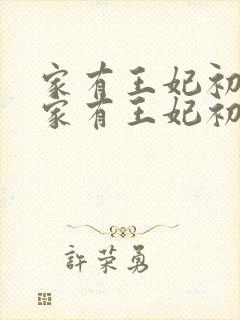 家有王妃初
家有王妃初
許荣勇